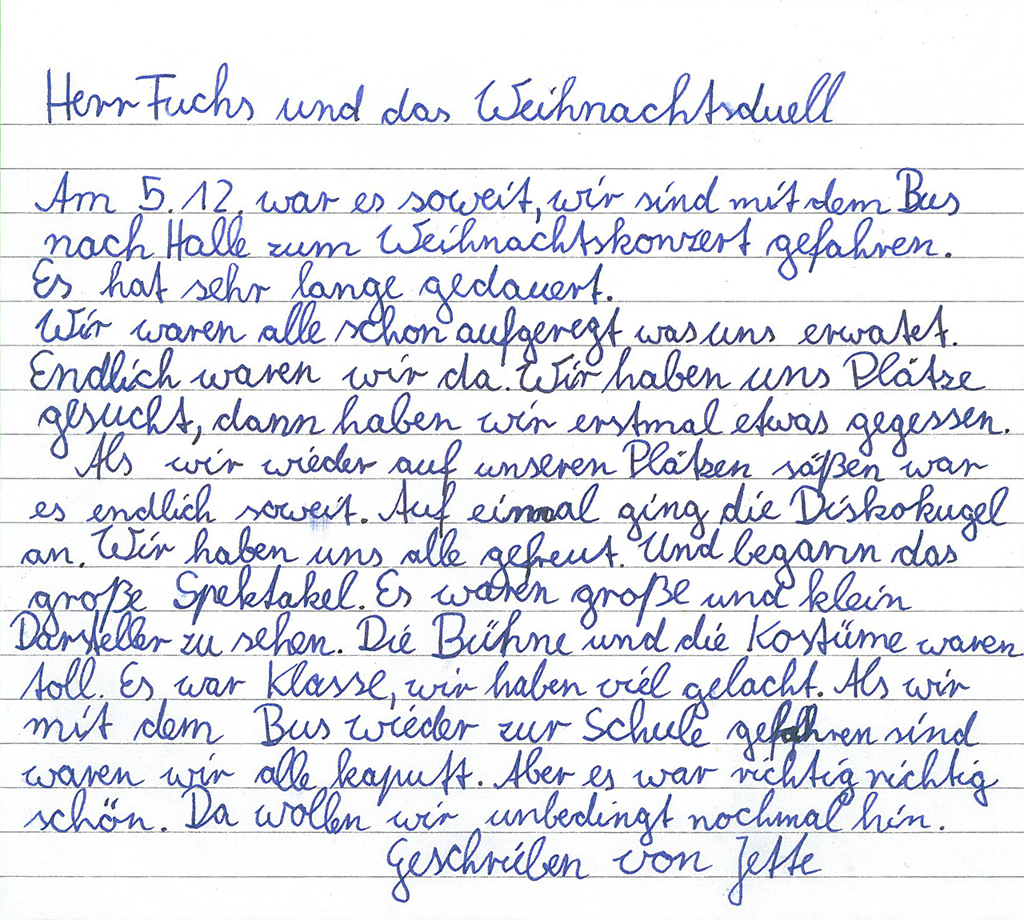 Herr Fuchs und das Weihnachtsduell
Am 5.12. war es soweit, wir sind mit dem Bus
nach Halle zum Weihnachtskonzert gefahren.
Es hat sehr lange gedauert.
Wir waren alle schon aufgeregt was uns erwatet.
Endlich waren wir da. Wir haben uns Plätze
gesucht, dann haben wir erstmal etwas gegessen.
Als wir wieder auf unseren Plätzen säßen war
es endlich soweit. Auf einmal ging die Diskokugel
an. Wir haben uns alle gefreut. Und begann das
große Spektakel. Es waren große und klein
Darsteller zu sehen. Die Bühne und die Kostüme waren
toll. Es war Klasse, wir haben viel gelacht. Als wir
mit dem Bus wieder zur Schule gefahren sind
waren wir alle kaputt. Aber es war richtig richtig
schön. Da wollen wir unbedingt nochmal hin.
Geschriben von Jette